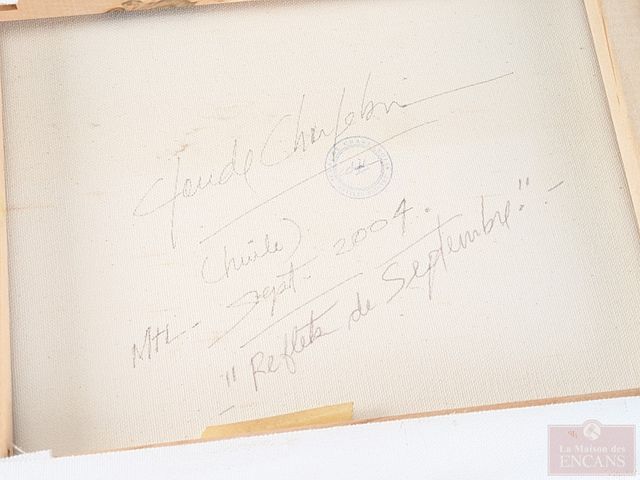 Claude
(huile)
Mtl - Sept. 2004.
"Reflets de Septembre". -
La Maison des
ENCANS